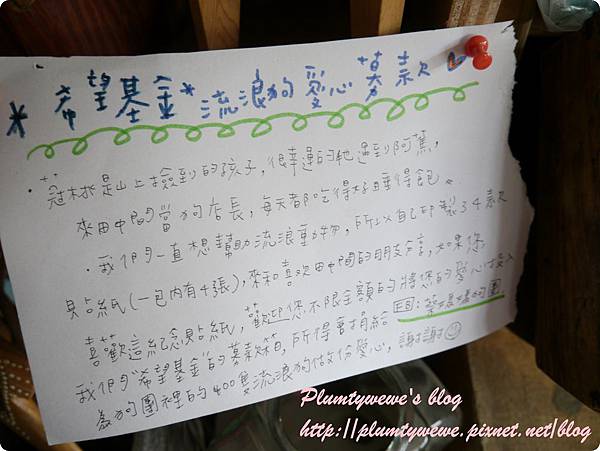 *希望基金*流浪狗愛心募款
·冠桃是山上撿到的孩子,很幸運的他遇到阿蕉,
來田中間當狗店長,每天都吃得好睡得飽。
·我們一直想幫助流浪動物,所以自己印製了4款
貝占紙(一包內有4張),來和喜欢田中間的朋友分享,如果你
喜歡這紀念貝占紙,歡迎您不限金額的將您的愛心投入
我們"希望基金"的募款箱,所得會捐給 FB:
為狗園裡的400隻流浪狗做份愛心,謝謝☺
Plumtywewe's blog
http://plumtywewe.pixnet.net/blog